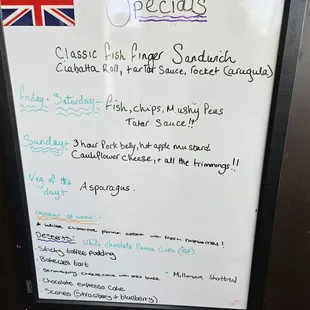 Specials
Classic fish finger Sandwich
Ciabatta Roll, tartar Sauce, rocket (arugula)
Friday + Saturday - Fish, chips, Mushy Peas
Tatar Sauce!!
Sunday - 3 hour Pork belly, hot apple mustard
Cauliflower cheese, + all the trimmings!!
Veg of the day - Asparagus.
of week -
A white chocolate panna cotta with fresh raspberries!
Desserts: white chocolate Panna Cotta (GF)
- Sticky toffee pudding
- Bakewell tart
- Strawberry cheesecake with
* Millionaire Shortbread
- Chocolate Espresso Cake
- Scones (Strawberry + blueberry)